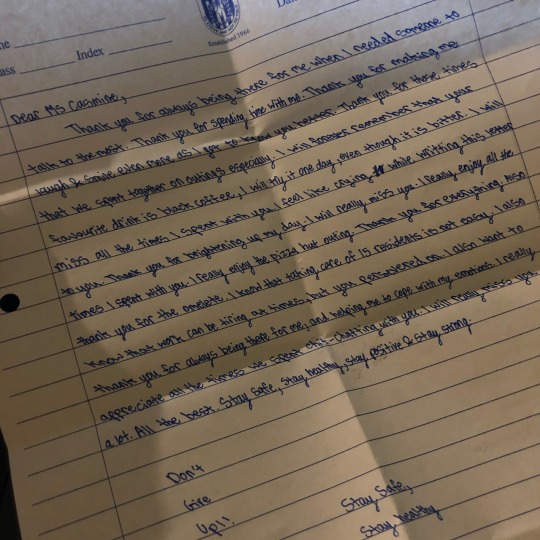 me
Da
ass Index
Established 1966
Dear Ms Casmine,
Thank you for always being there for me when I needed someone to
talk to the most. Thank you for spending time with me. Thank you for making me
laugh & smile even more as I got to know you better. Thank you for those times
that we spent together on outings especially. I will forever remember that your
favourite drink is black coffee, I will try it one day, even though it is bitter. I will
miss all the times I spent with you. I feel like crying while writting this letter
to you. Thank you for brightening up my day. I will really miss you. I really enjoy all the
times I spent with you. I really enjoy the pizza hut outing. Thank you for everything. Also
thank you for the omelete. I know that taking care of 15 residents is not easy. I also
know that work can be tiring at times, but you persevered on. I also want to
thank you for always being there for me, and helping me to cope with my emotions. I really
appreciate all the times we spent chit-chatting with you. I will really miss you
a lot. All the best. Stay safe, stay healthy, stay positive & stay strong.
Don't
Give
Up!!
Stay Safe,
Stay healthy